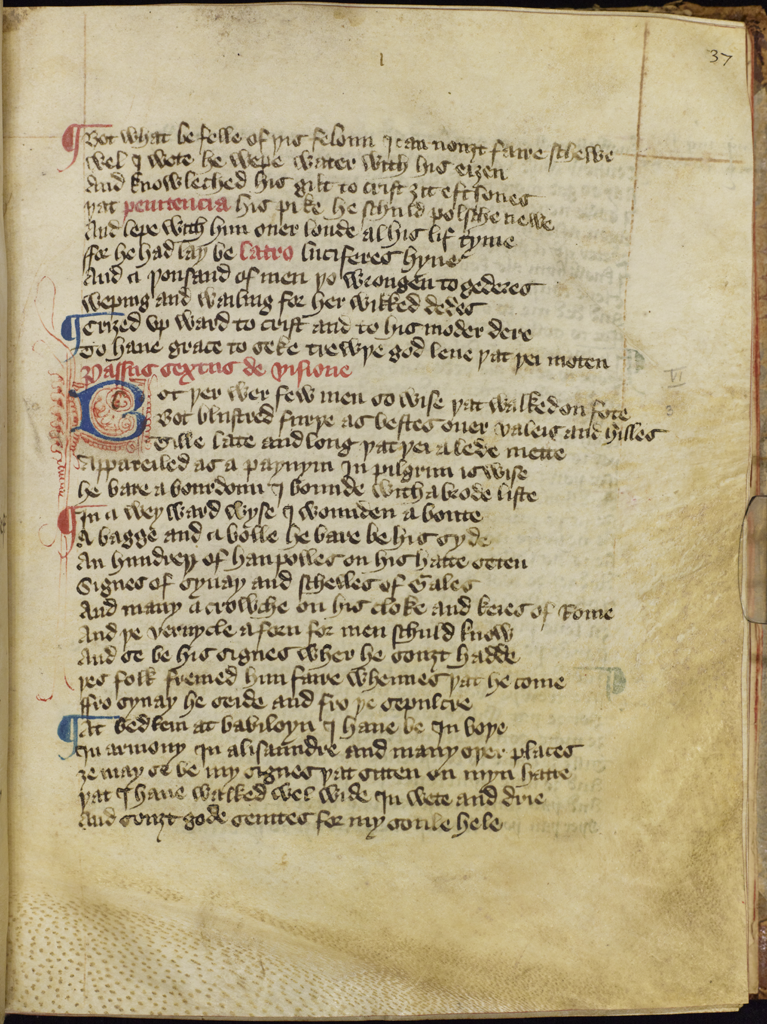 37
Bot what be felle of þis feloun I can nouȝt faire schewe
wel I wote he wepe water with his eiȝen
And knowleched his gilt to crist ȝit eftsones
þat penitencia his pike he schuld polsche newe
And lepe with him ouer londe al his lif tyme
ffor he had lay be latro luciferes hyne
And a þousand of men þo wrongen to gederes
weping and wailing for her wikked dedes
Crized vp ward to crist and to his moder dere
To haue grace to seke trewþe god leue þat þei moten
Passus sextus de visione
Bot þer wer few men so wise þat walked on fote
Bot blustred furþe as bestes ouer valeis and hilles
Tille late and long þat þei a lede mette
Appareiled as a paynym In pilgrim is wise
he bare a bourdoun I bounde with a brode liste
In a weyward wyse I wounden a boute
A bagge and a bolle he bare be his syde
An hundreþ of hanpolles on his hatte seten
Signes of synay and schelles of Gales
And many a crowche on his cloke and keies of Rome
And þe vernycle aforn for men schuld know
And se be his signes wher he souȝt hadde
þes folk freined him faire whennes þat he come
ffro synay he seide and fro þe sepulcre
At bedlem at babiloyn I haue be In boþe
In armony In alisaundre and many oþer places
ȝe may se be my signes þat sitten on myn hatte
þat I haue walked wel wide In wete and drie
And souȝt gode seintes for my soule hele
VI